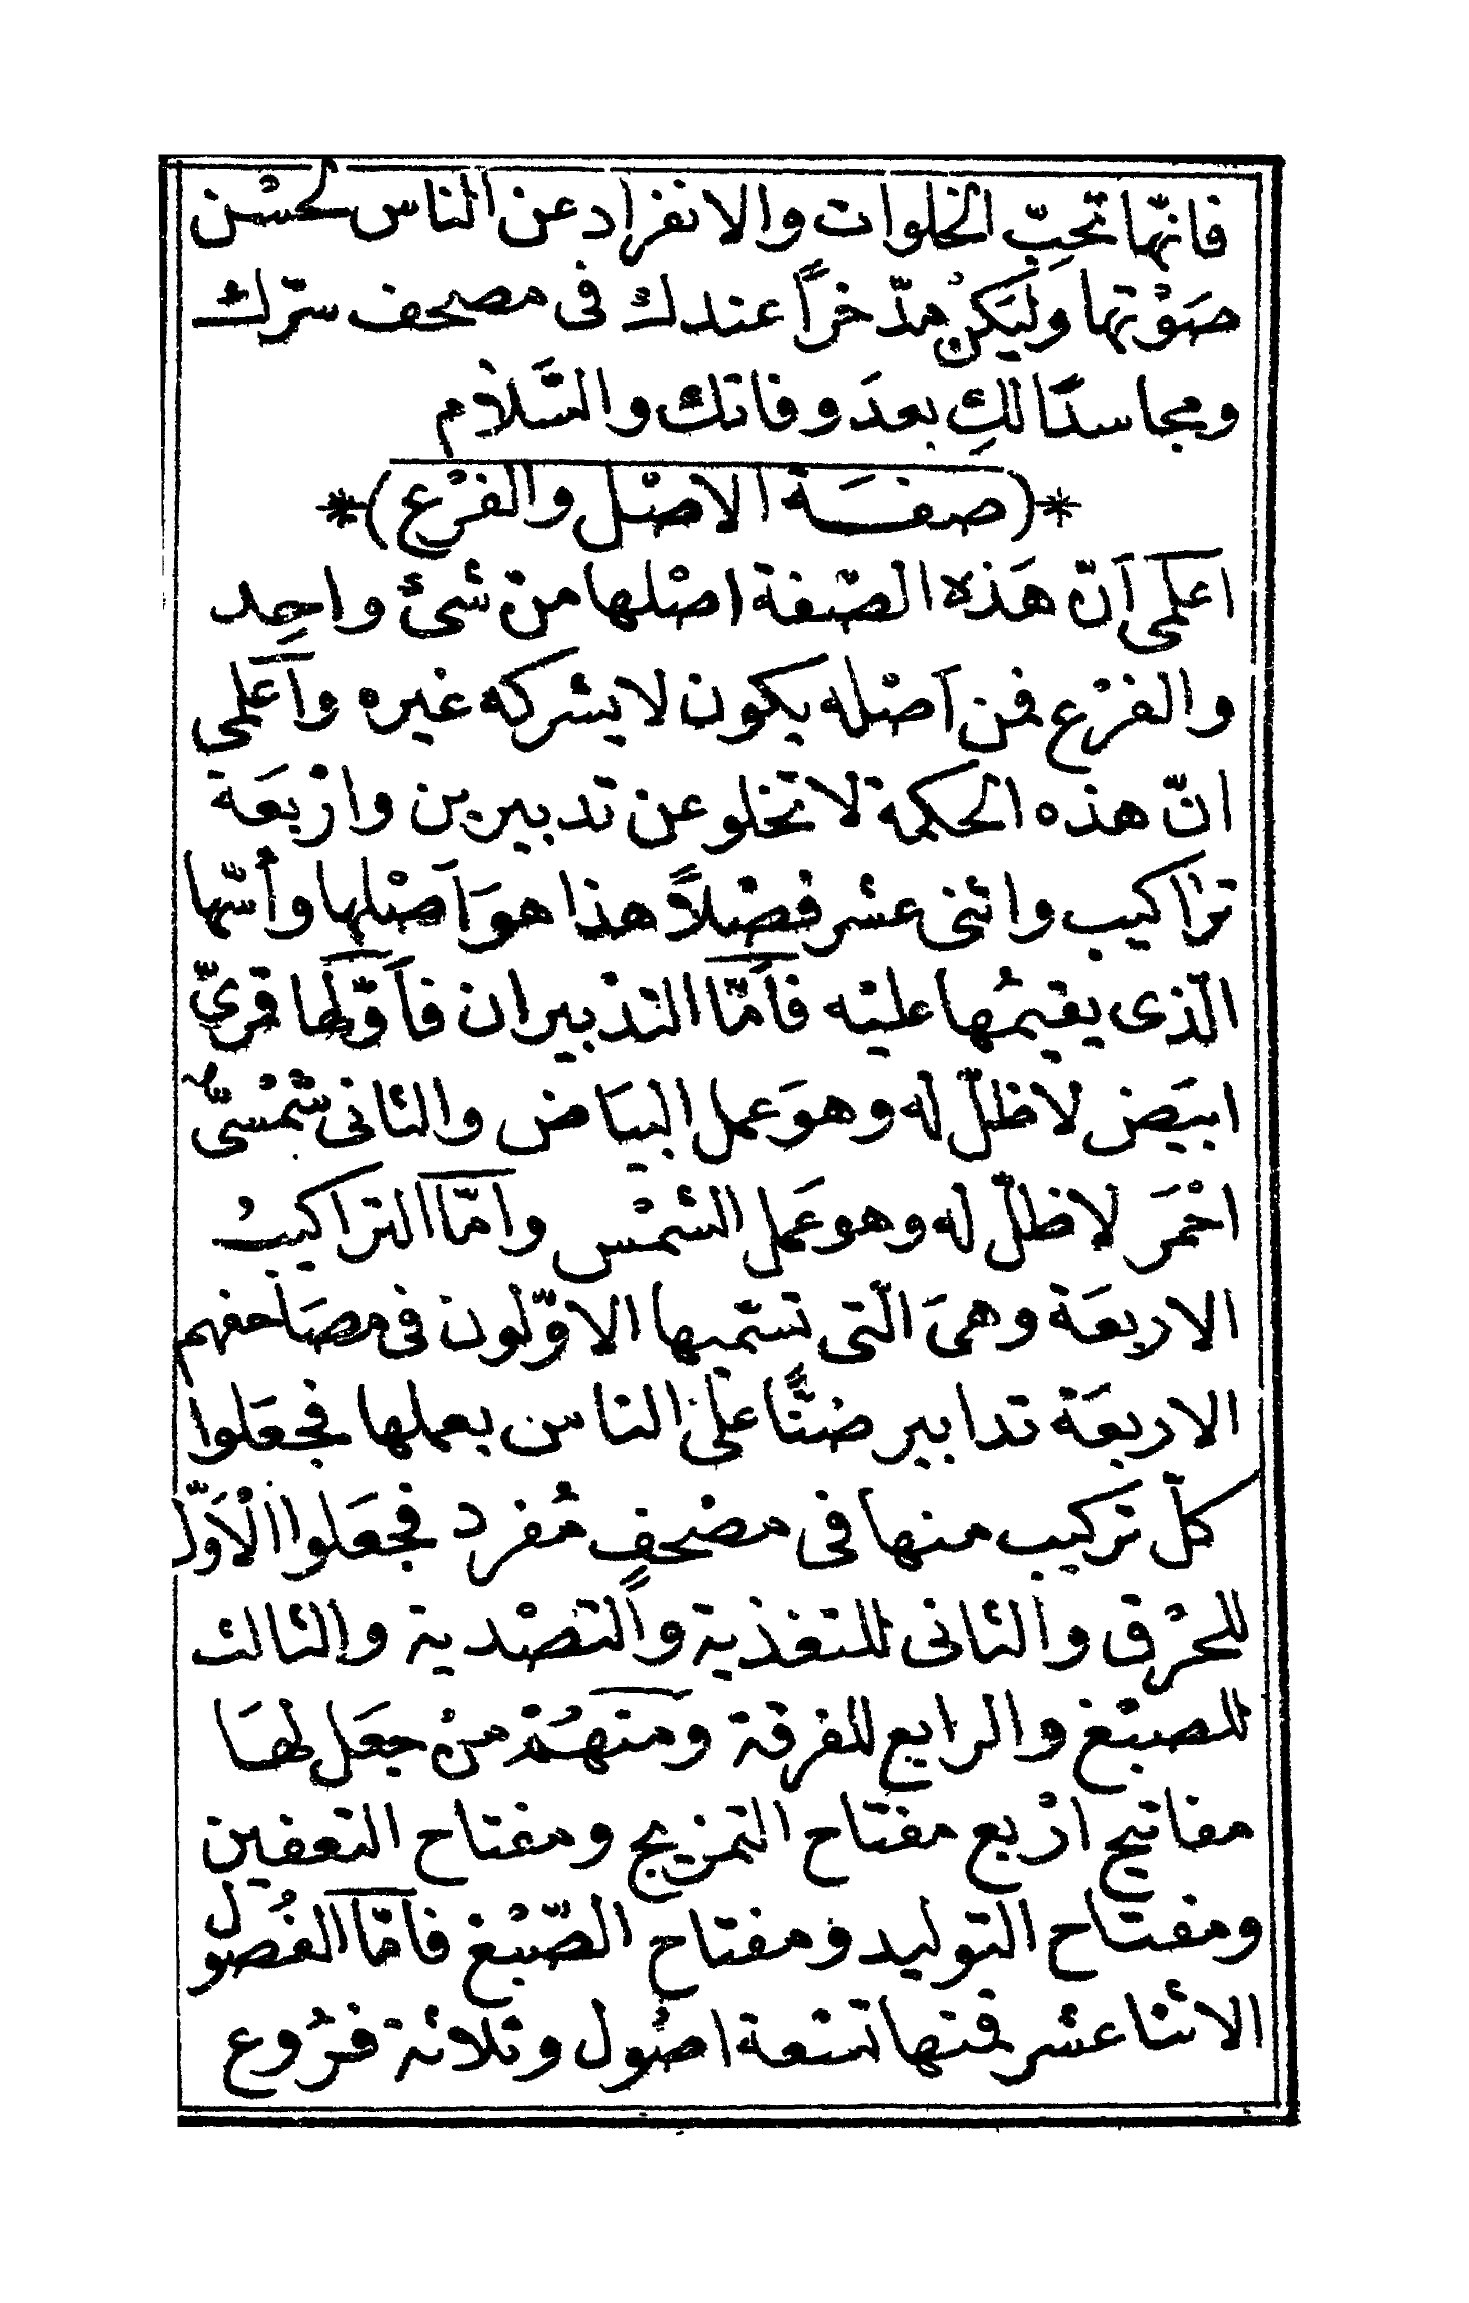 فانّها تحبّ الخلوات والانفراد عن الناس لحسْن
صَوْتها وَليَكنْ مدّخراً عندك فى مصحف سترك
ومجاسدًا لكِ بعدَ وفاتك والسَّلام
*(صفَة الاصْل والفرْع)*
اعلمى أنّ هَذه الصّفة اصْلها من شئ واحِد
والفرْع فمن اَصْله يكون لا يشركه غيره واَعلمى
انّ هذه الحكمة لا تخلو عن تدبيرين وارْبعَة
تراكيب واثنى عشر فصْلاً هذا هوَ اَصْلها وأسّها
الّذى يقيمُها عليْه فاَمّا التدْبيران فاَوّلها قمرىّ
ابيَض لا ظلّ له وهوَ عمل البيَاض والثانى شمْسىّ
احْمَر لا ظلّ له وهو عَمل الشمْس وامّا التراكيبُ
الاربعَة وهىَ الّتى تسّميها الاوّلون فى مصَاحفهم
الاربعَة تدابير ضنًّا على الناس بعملها فجعَلوا
كلّ تركيب منها فى مصْحفٍ مُفرد فجعَلوا الْاَوّل
للحرْق والثانى للتغذية والتصْدية والثالث
للصبْغ والرابع للفرقة ومنهُمْ منْ جعَل لهَا
مفاتيح ارْبع مفتاح التمزيج ومفتاح التعفين
ومفتاح التوليد ومفتاح الصّبْغ فاَمّا الفُصول
الاثنا عشر فمنها تسْعة اصُول وثلاثة فرُوع